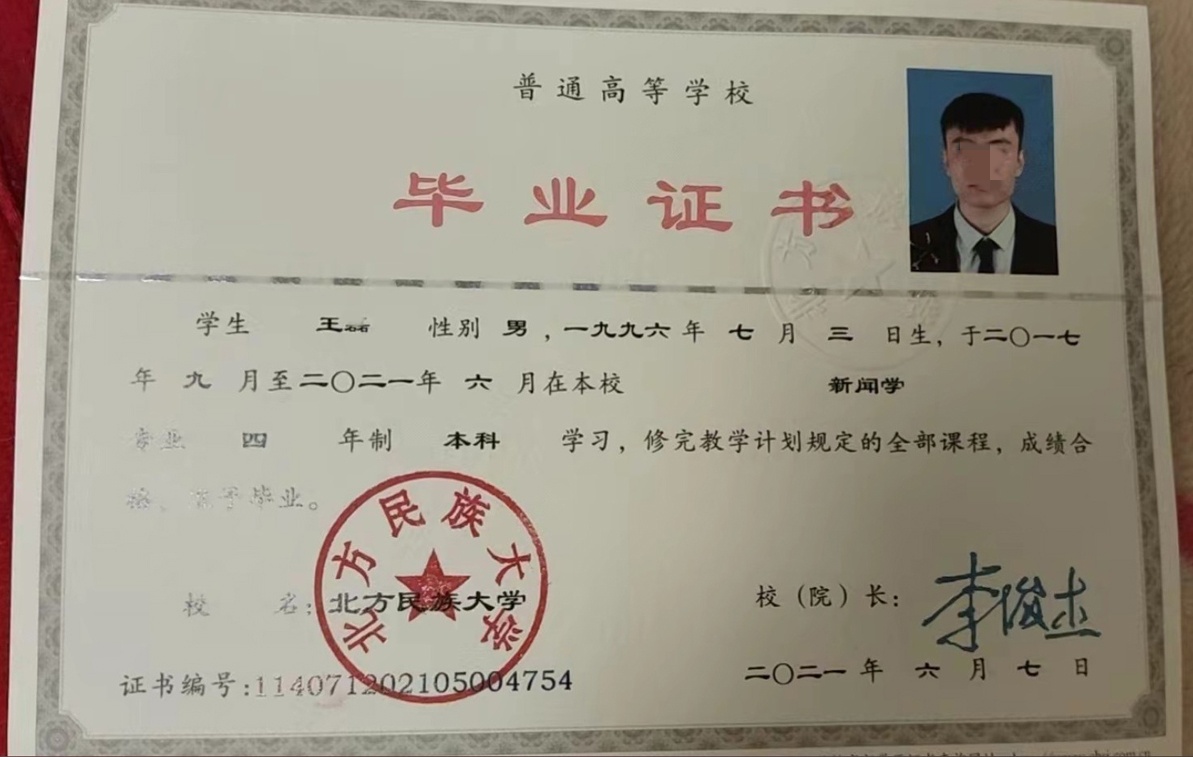 普通高等学校
毕业证书
学生 王磊 性别 男，一九九六年 七 月 三 日生，于二〇一七
年 九 月至二〇二一年 六 月在本校 新闻学
专业 四 年制 本科 学习，修完教学计划规定的全部课程，成绩合
格，准予毕业。
北方民族大学
校 名：北方民族大学
校（院）长：李俊杰
证书编号:114071202105004754
二〇二一年 六 月 七 日